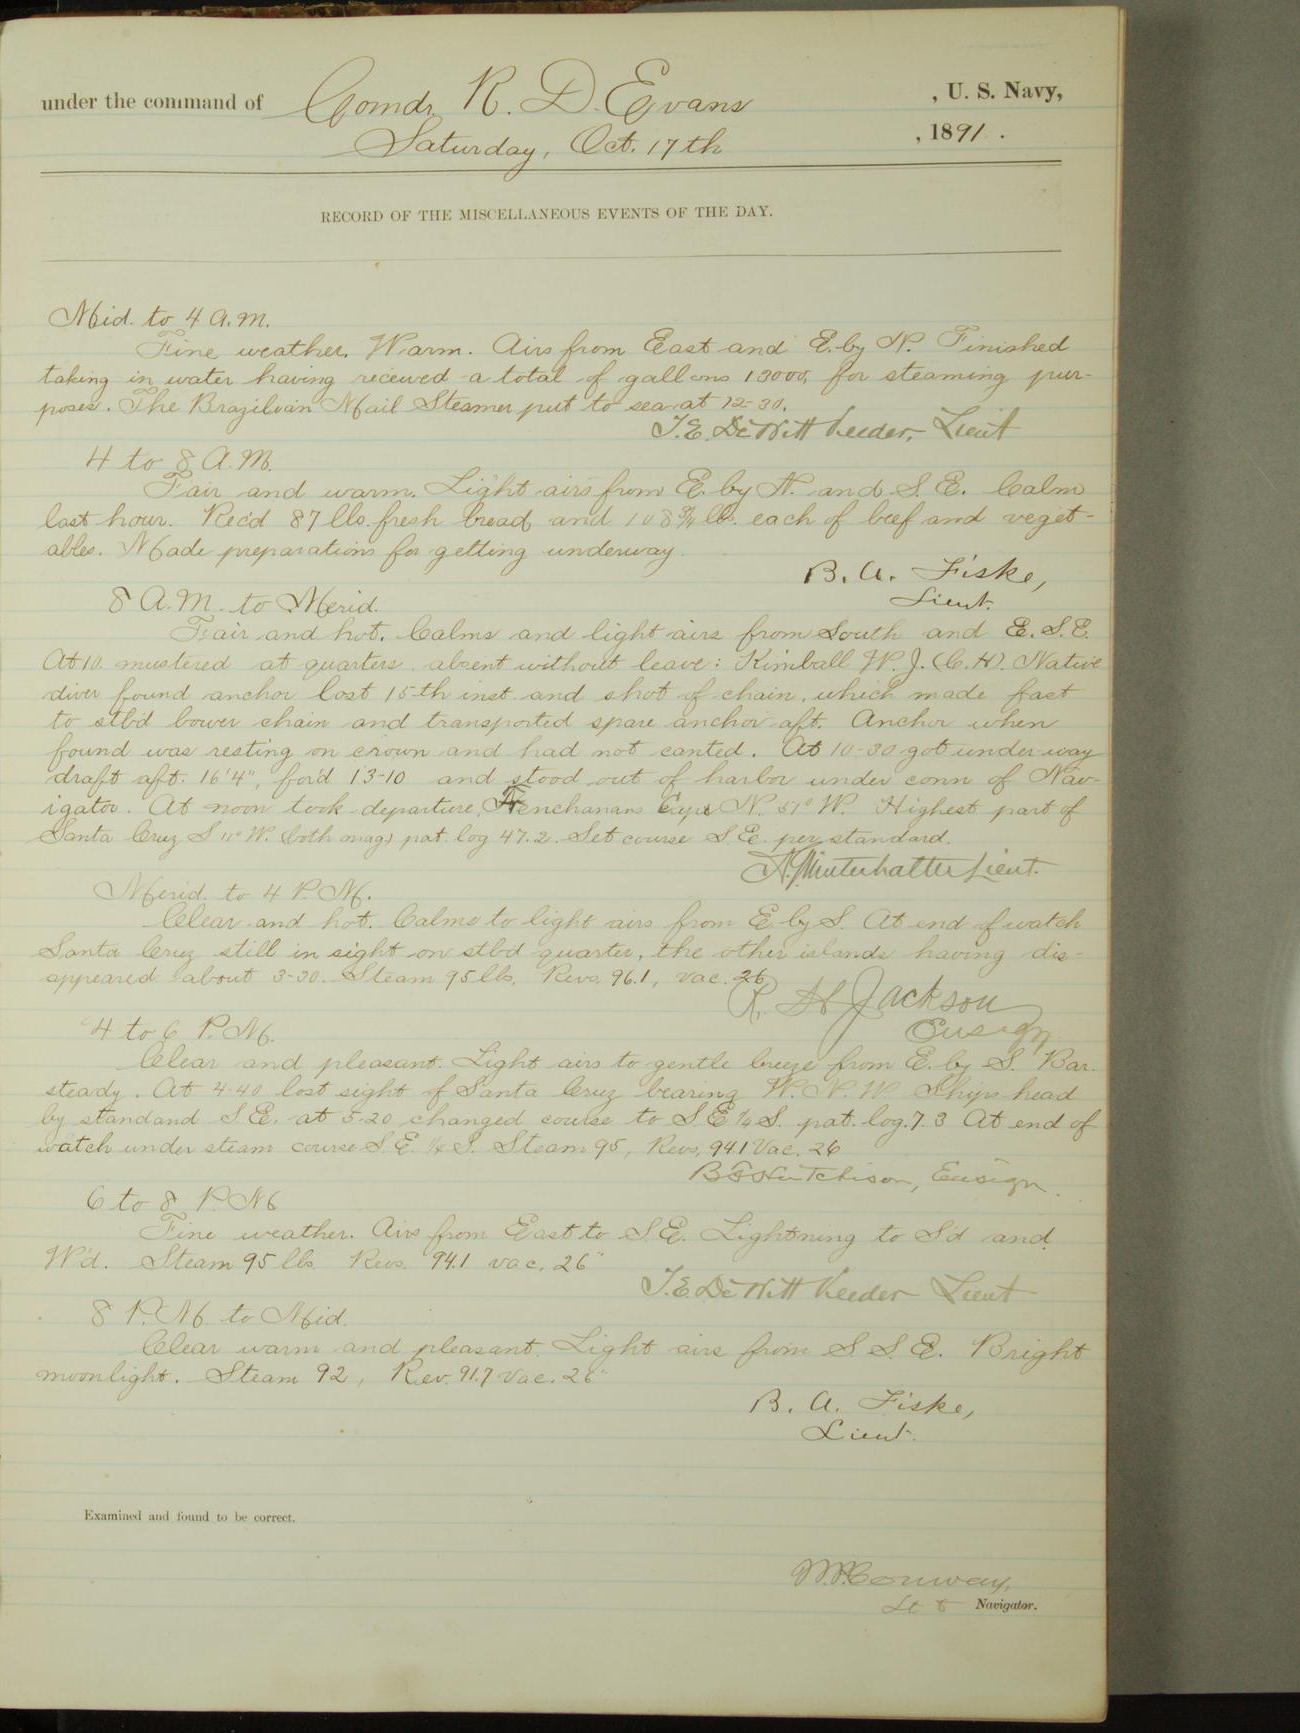 under the command of Comdr R. D. Evans, U. S. Navy,
Saturday, Oct. 17th, 1891.
RECORD OF THE MISCELLANEOUS EVENTS OF THE DAY.
Mid. to 4 A.M.
Fine weather. Warm. Airs from East and E. by N. Finished
taking in water having received a total of gallons 13000, for steaming pur-
poses. The Brazilian Mail Steamer put to sea at 12-30.
T.E. DeWitt Veeder, Lieut
4 to 8 A.M.
Fair and warm. Light airs from E. by N. and S.E. Calm
last hour. Rec'd 87 lbs. fresh bread and 108¾ lbs. each of beef and veget-
ables. Made preparations for getting underway.
B. A. Fiske,
Lieut.
8 A.M. to Merid.
Fair and hot. Calms and light airs from South and E.S.E.
At 10 mustered at quarters absent without leave: Kimball W. J. (C.H). Native
diver found anchor lost 15th inst. and shot of chain, which made fast
to stb'd bower chain and transported spare anchor aft. Anchor when
found was resting on crown and had not canted. At 10-30 got under-way
draft aft. 16'4", for'd 13-10 and stood out of harbor under conn of Nav-
igator. At noon took departure, Cape N. 51° W. Highest part of
Santa Cruz S 11° W. (both mag) pat. log 47.2. Set course S.E. per standard.
A. Minterhalter Lieut.
Merid. to 4 P.M.
Clear and hot. Calms to light airs from E by S. At end of watch
Santa Cruz still in sight on stbd quarter, the other islands having dis-
appeared about 3-30. Steam 95 lbs, Revs. 96.1, vac. 26
R. H. Jackson
Ensign
4 to 6 P.M.
Clear and pleasant. Light airs to gentle breeze from E. by S. Bar.
steady. At 4-40 lost sight of Santa Cruz bearing W.N.W. Ships head
by standard S.E. at 5-20 changed course to S E ¼ S. pat. log. 7.3 At end of
watch under steam course S.E. ¼ S. Steam 95, Revs, 94.1 Vac. 26
B F Hutchison, Ensign.
6 to 8 P.M.
Fine weather. Airs from East to S.E. Lightning to S'd and
W'd. Steam 95 lbs. Revs. 94.1 vac. 26"
T.E. DeWitt Veeder Lieut
8 P.M. to Mid.
Clear warm and pleasant. Light airs from S.S.E. Bright
moonlight. Steam 92, Rev. 91.7 Vac. 26"
B. A. Fiske,
Lieut.
Examined and found to be correct.
W.P. Conway,
Lt Navigator.